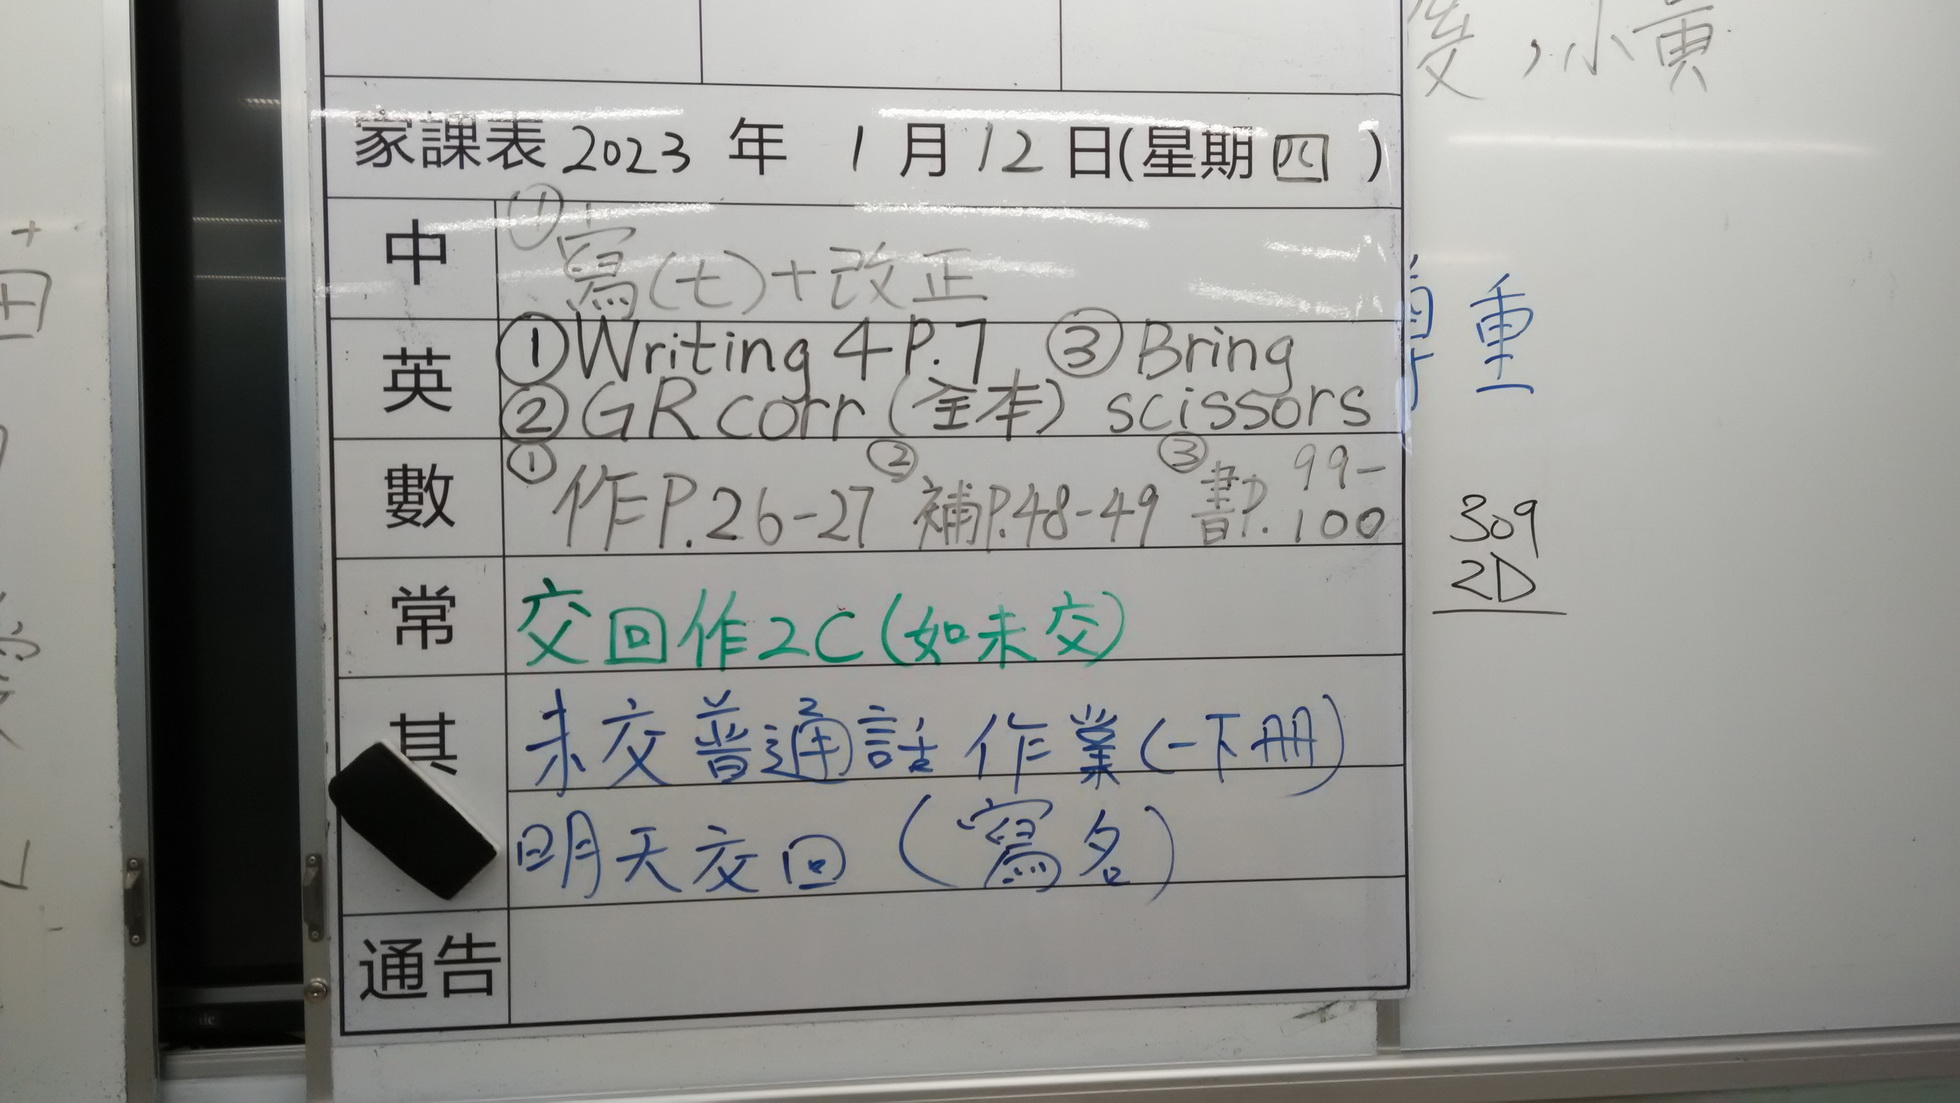 小黃
家課表 2023 年 1 月 12 日(星期 四 )
中
① 寫(七)+改正
英
① Writing 4 P.7 ③ Bring
② GR corr (全本) scissors
數
① 作P.26-27 ② 補P.48-49 ③ 書P. 99-
100
常
交回作2C(如未交)
其
未交普通話作業(一下冊)
明天交回(寫名)
通告
重
309
2D